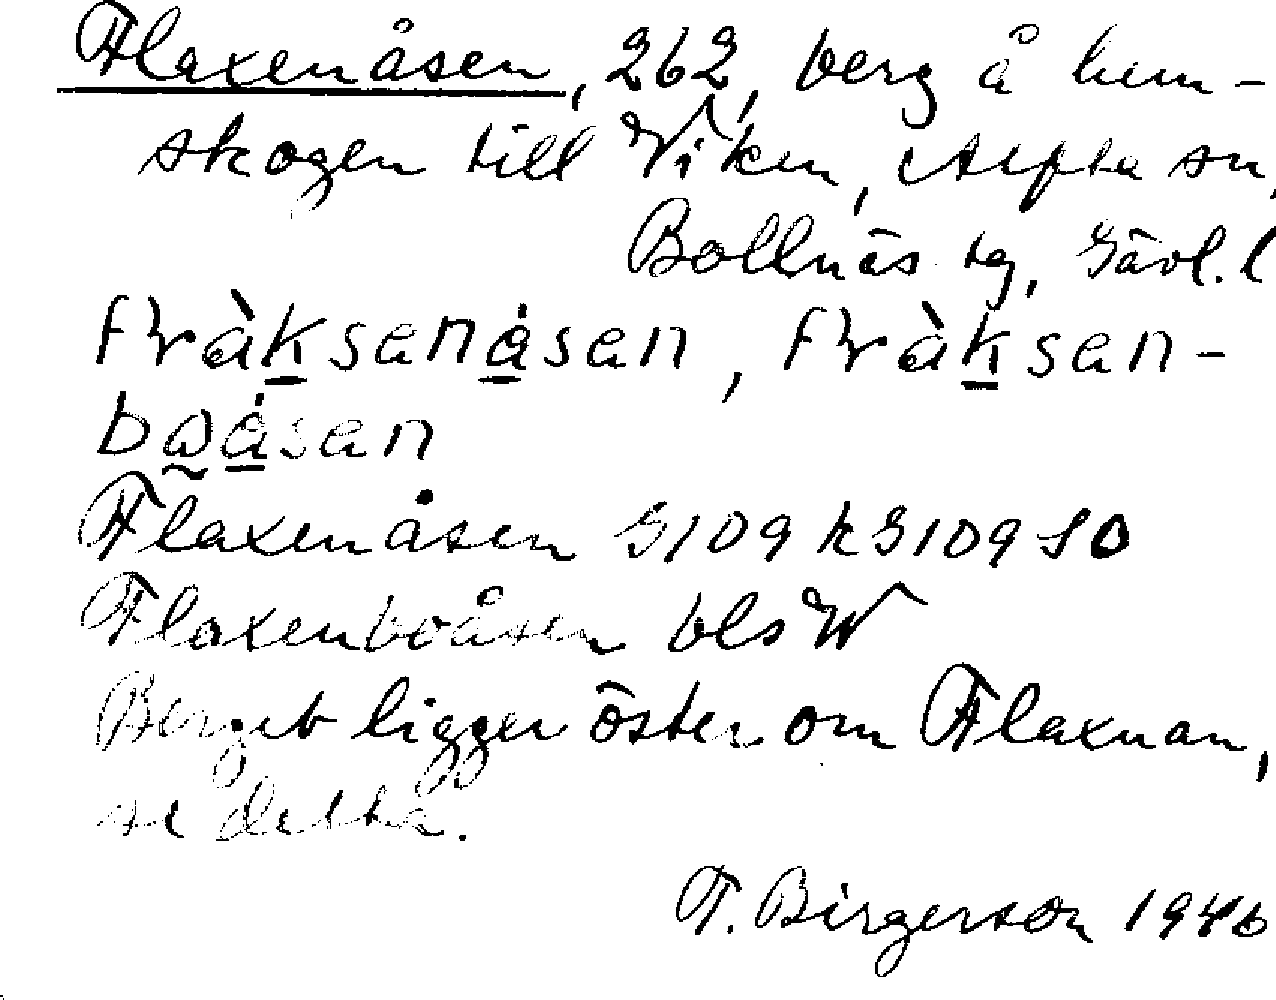 Flaxenåsen, 262, berg å hem-
skogen till Viken, Alfta sn,
Bollnäs tg, Gävl. l
fràksenåsen, fràksen-
boåsen
Flaxenåsen G109 k G109 SO
Flaxenboåsen bls W
Berget ligger öster om Flaxnan,
se detta.
T. Birgerson 1946